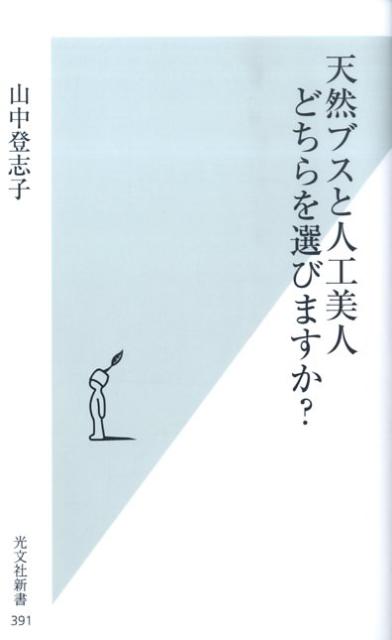 天然ブスと人工美人
どちらを選びますか?
山中登志子
光文社新書
391